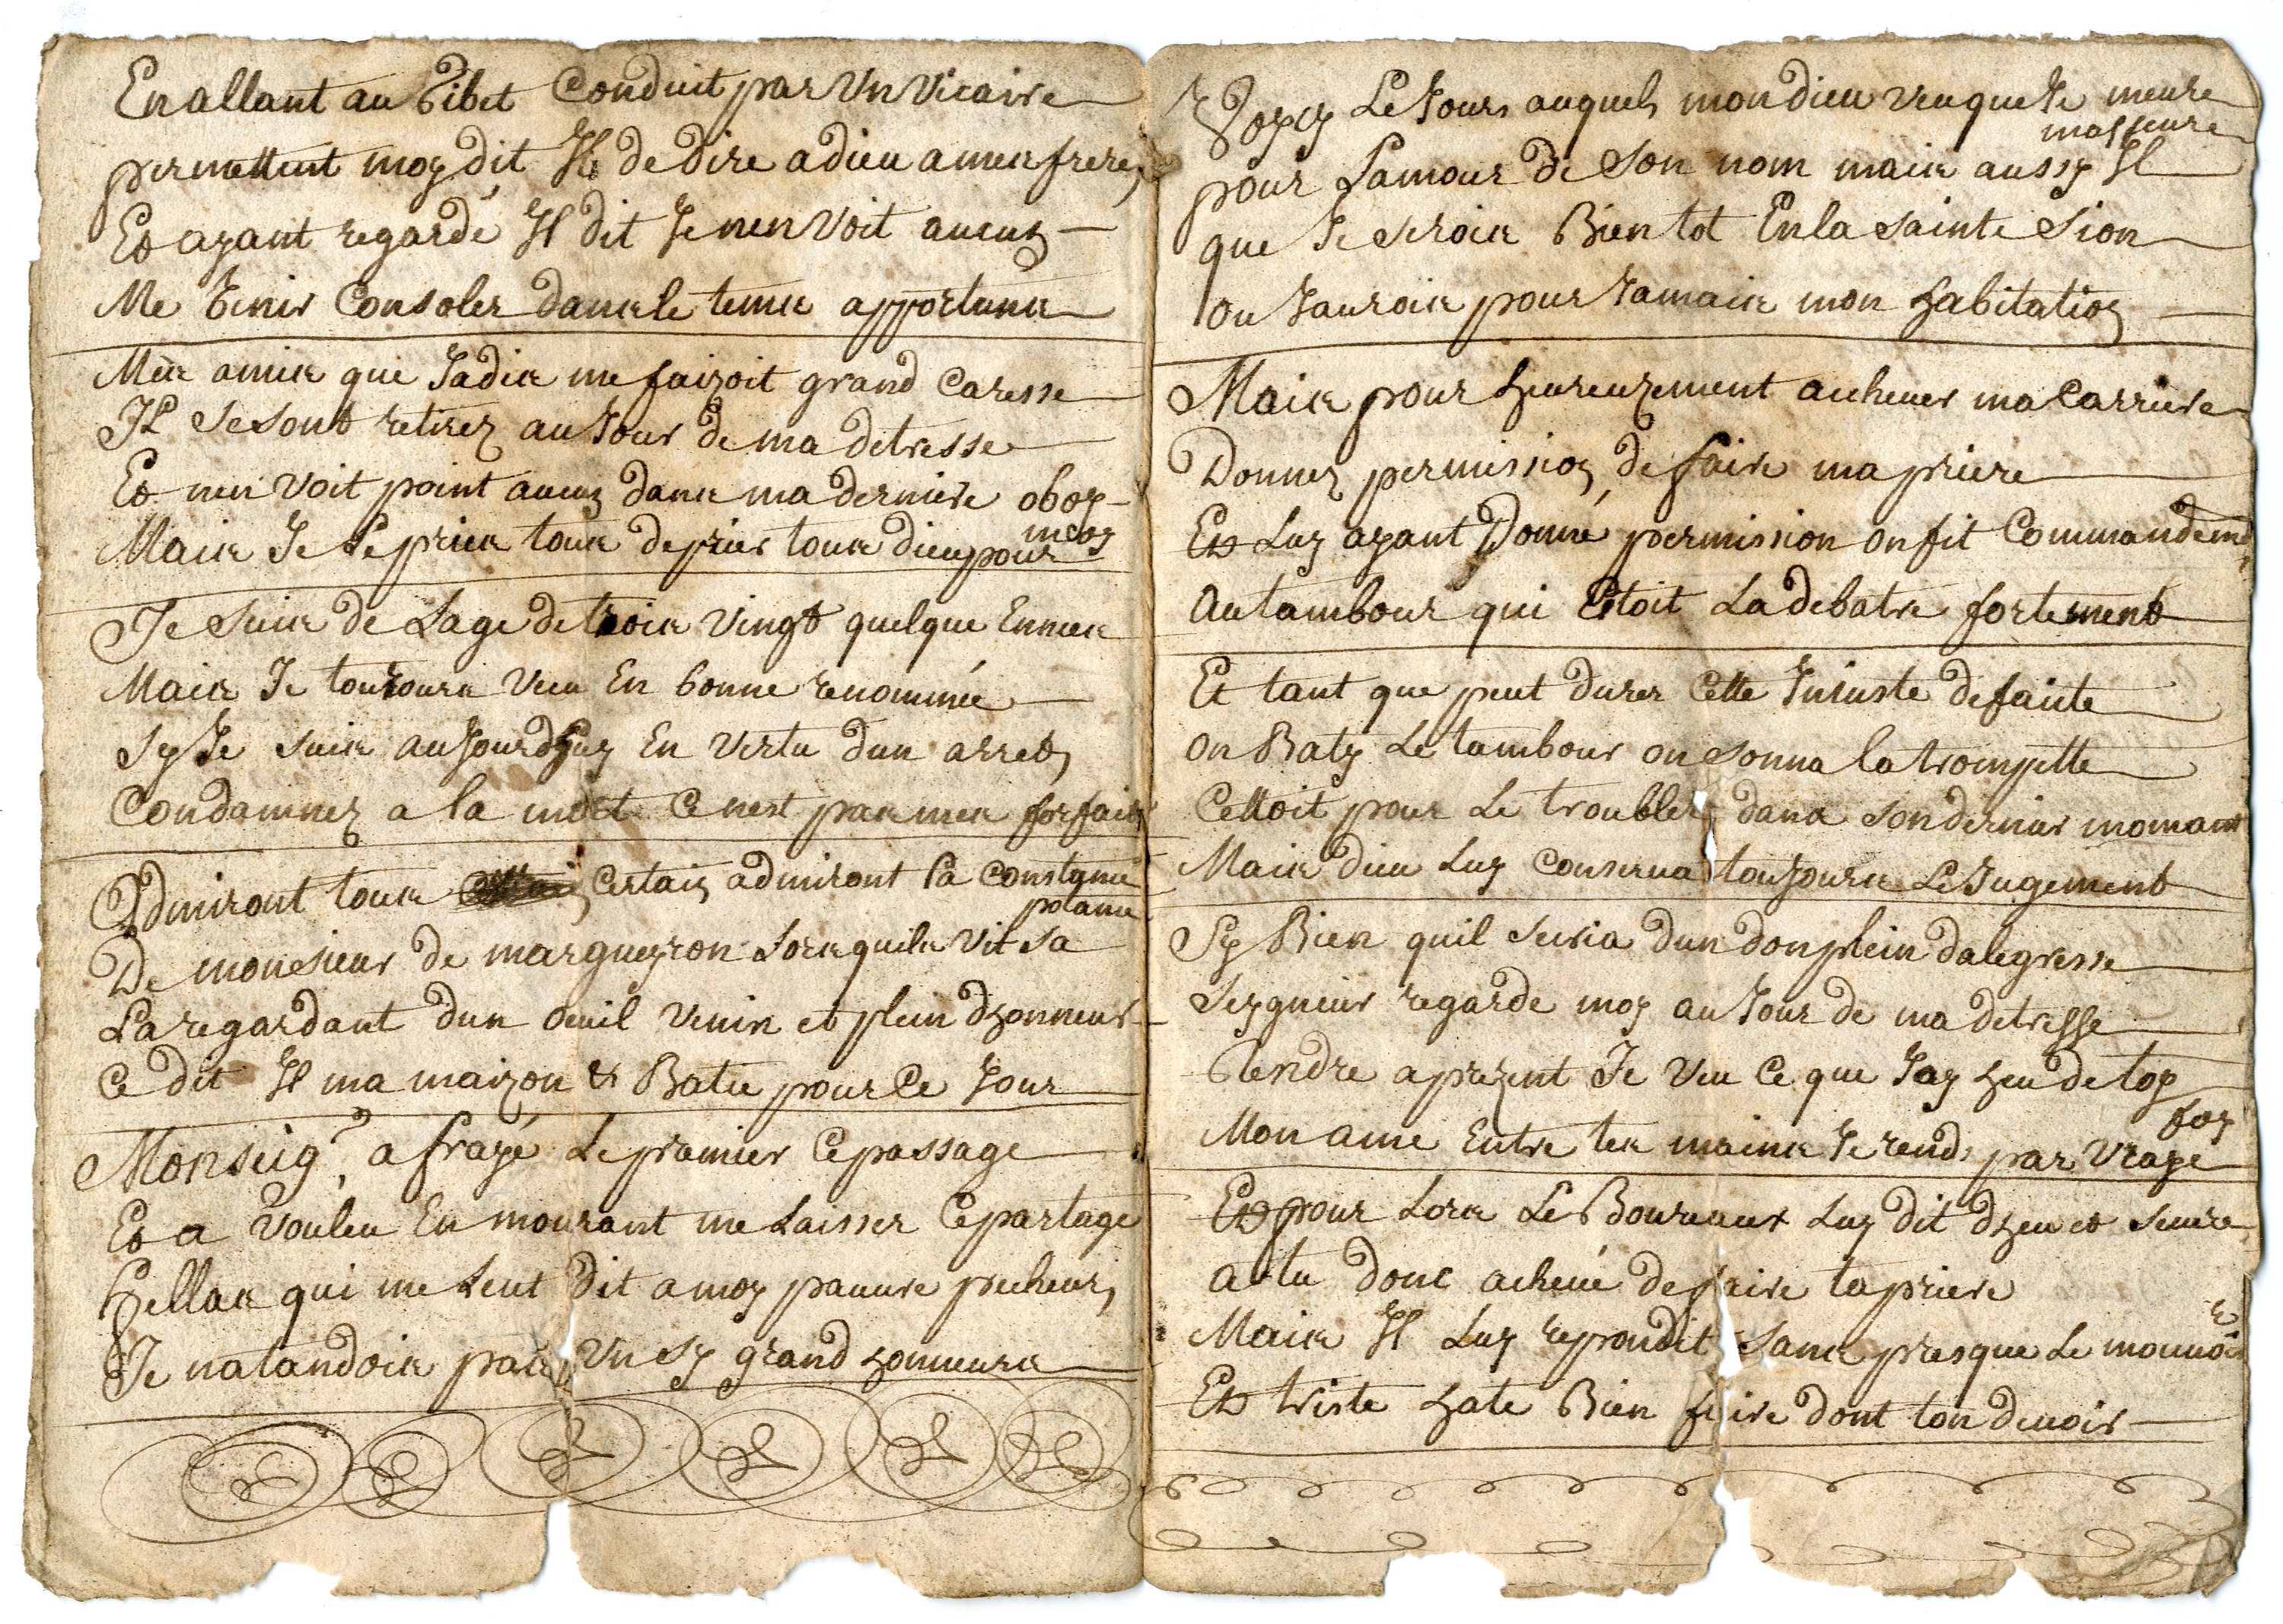 En allant au Gibet Conduit par Un Vicaire
permettent moy dit Il de dire adieu a mes frere
Et ayant regardé Il dit Je nen Voit aucun
Me Venir Consoler dans le tems apportuns
Mes amis que Jadis me faizoit grand Caresse
Il se sont retirez au Jour de ma detresse
Et nen Voit point aucun dans ma derniere oboy
Mais Je Le pries tous de prier tous dieu pour moy
Je suis de Lage de trois Vingt quelque Ennees
Mais Je toujours Veu En bonne renommée
Sy Je suis aujourdhuy En Vertu dun arret
Condamnez a la mort Ce nest pas mes forfait
Admiront tous Certain admiront la Constance
De monsieur de margueyron Lors quils Vit sa potance
La regardant dun oeuil Venin et plein dhonneur
Ce dit Il ma maizon et Batie pour Ce Jour
Monseigr a frayé Le pramier Ce passage
Et a Vouleu En mourant me Laisser Ce partage
hellas qui me Leut dit a moy pauure pecheur
Je natandois pas Un sy grand honneurs
Voycy Le Jours auquels mon dieu veu que Je meure
pour Lamour de Son nom mais aussy Il masseure
que Je serois Bien tot En la sainte Sion
ou Jaurois pour Jamais mon habitation
Mais pour heureuzement acheuer ma Carriere
Donnez permission de faire ma priere
Et Luy ayant Donné permission on fit Commandemt
Au tambour qui Etoit La de batre fortement
Et tant que peut durer Cette Iniuste defaite
on Baty Le tambour on sonna la trompette
Cettoit pour Le troubler dans son dernier momant
Mais dieu Luy Conserua toujours Le Jugement
Sy Bien quil seuria dun don plein dalegresse
Seygneur regarde moy au Jour de ma detresse
Rendre a prezent Je Veu Ce que Jay heu de toy
Mon ame Entre tes mains Je rends par Vraye foy
Et pour Lors Le Boureaux Luy dit dheu et seuere
as tu donc acheué de faire ta priere
Mais Il Luy repondit sans presque Le mouuoir
Et triste hate Bien faire dont ton deuoir